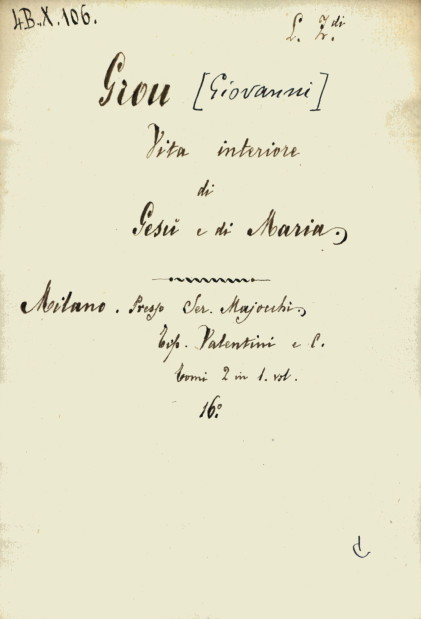 4B.X.106.
L. Z.di
Grou [Giovanni]
Vita interiore
di
Gesù e di Maria.
Milano. Presso Ser. Majocchi.
Tip. Valentini e C.
Tomi 2 in 1. vol.
16°